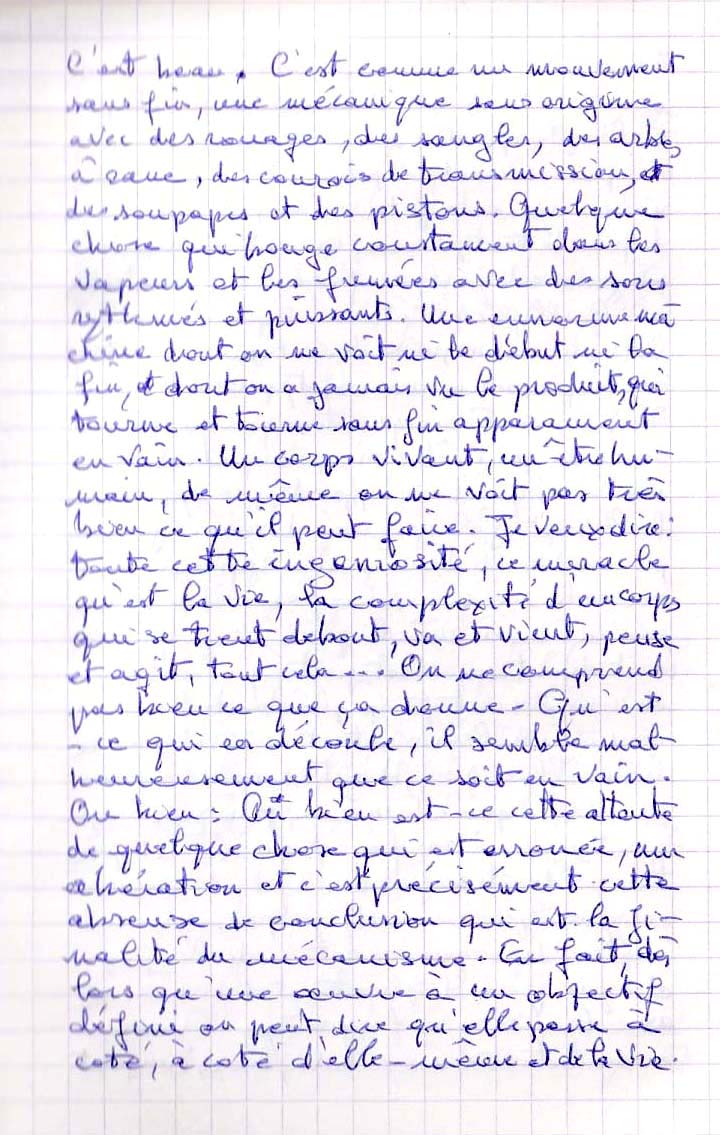 C'est beau. C'est comme un mouvement
sans fin, une mécanique sans origine
avec des rouages, des sangles, des arbres
à came, des courois de transmission, et
des soupapes et des pistons. Quelque
chose qui bouge constament dans les
vapeurs et les fumées avec des sons
rythmés et puissants. Une enorme ma
chine dont on ne voit ni le début ni la
fin, et dont on a jamais vu le produit, qui
tourne et tourne sans fin apparament
en vain. Un corps vivant, un être hu-
main, de même on ne voit pas très
bien ce qu'il peut faire. Je veux dire :
toute cette ingeniosité, ce miracle
qu'est la vie, la complexité d'un corps
qui se tient debout, va et vient, pense
et agit, tout cela... On ne comprend
pas bien ce que ça donne - Qu'est
- ce qui en découle, il semble mal-
heureusement que ce soit en vain.
Ou bien : Où bien est-ce cette attente
de quelque chose qui est erronée, une
abération et c'est précisément cette
absense de conclusion qui est la fi-
nalité du mécanisme. En fait, dès
lors qu'une œuvre à un objectif
défini on peut dire qu'elle passe à
coté, à coté d'elle-même et de la vie.